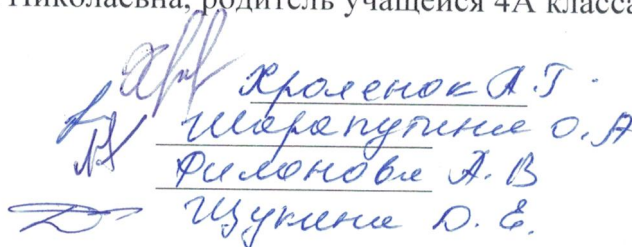 Николаевна, родитель учащейся 4А класса
Хроленок А.Г.
Шарапутина О.А
Филонова А.В
Щукина Д.Е.